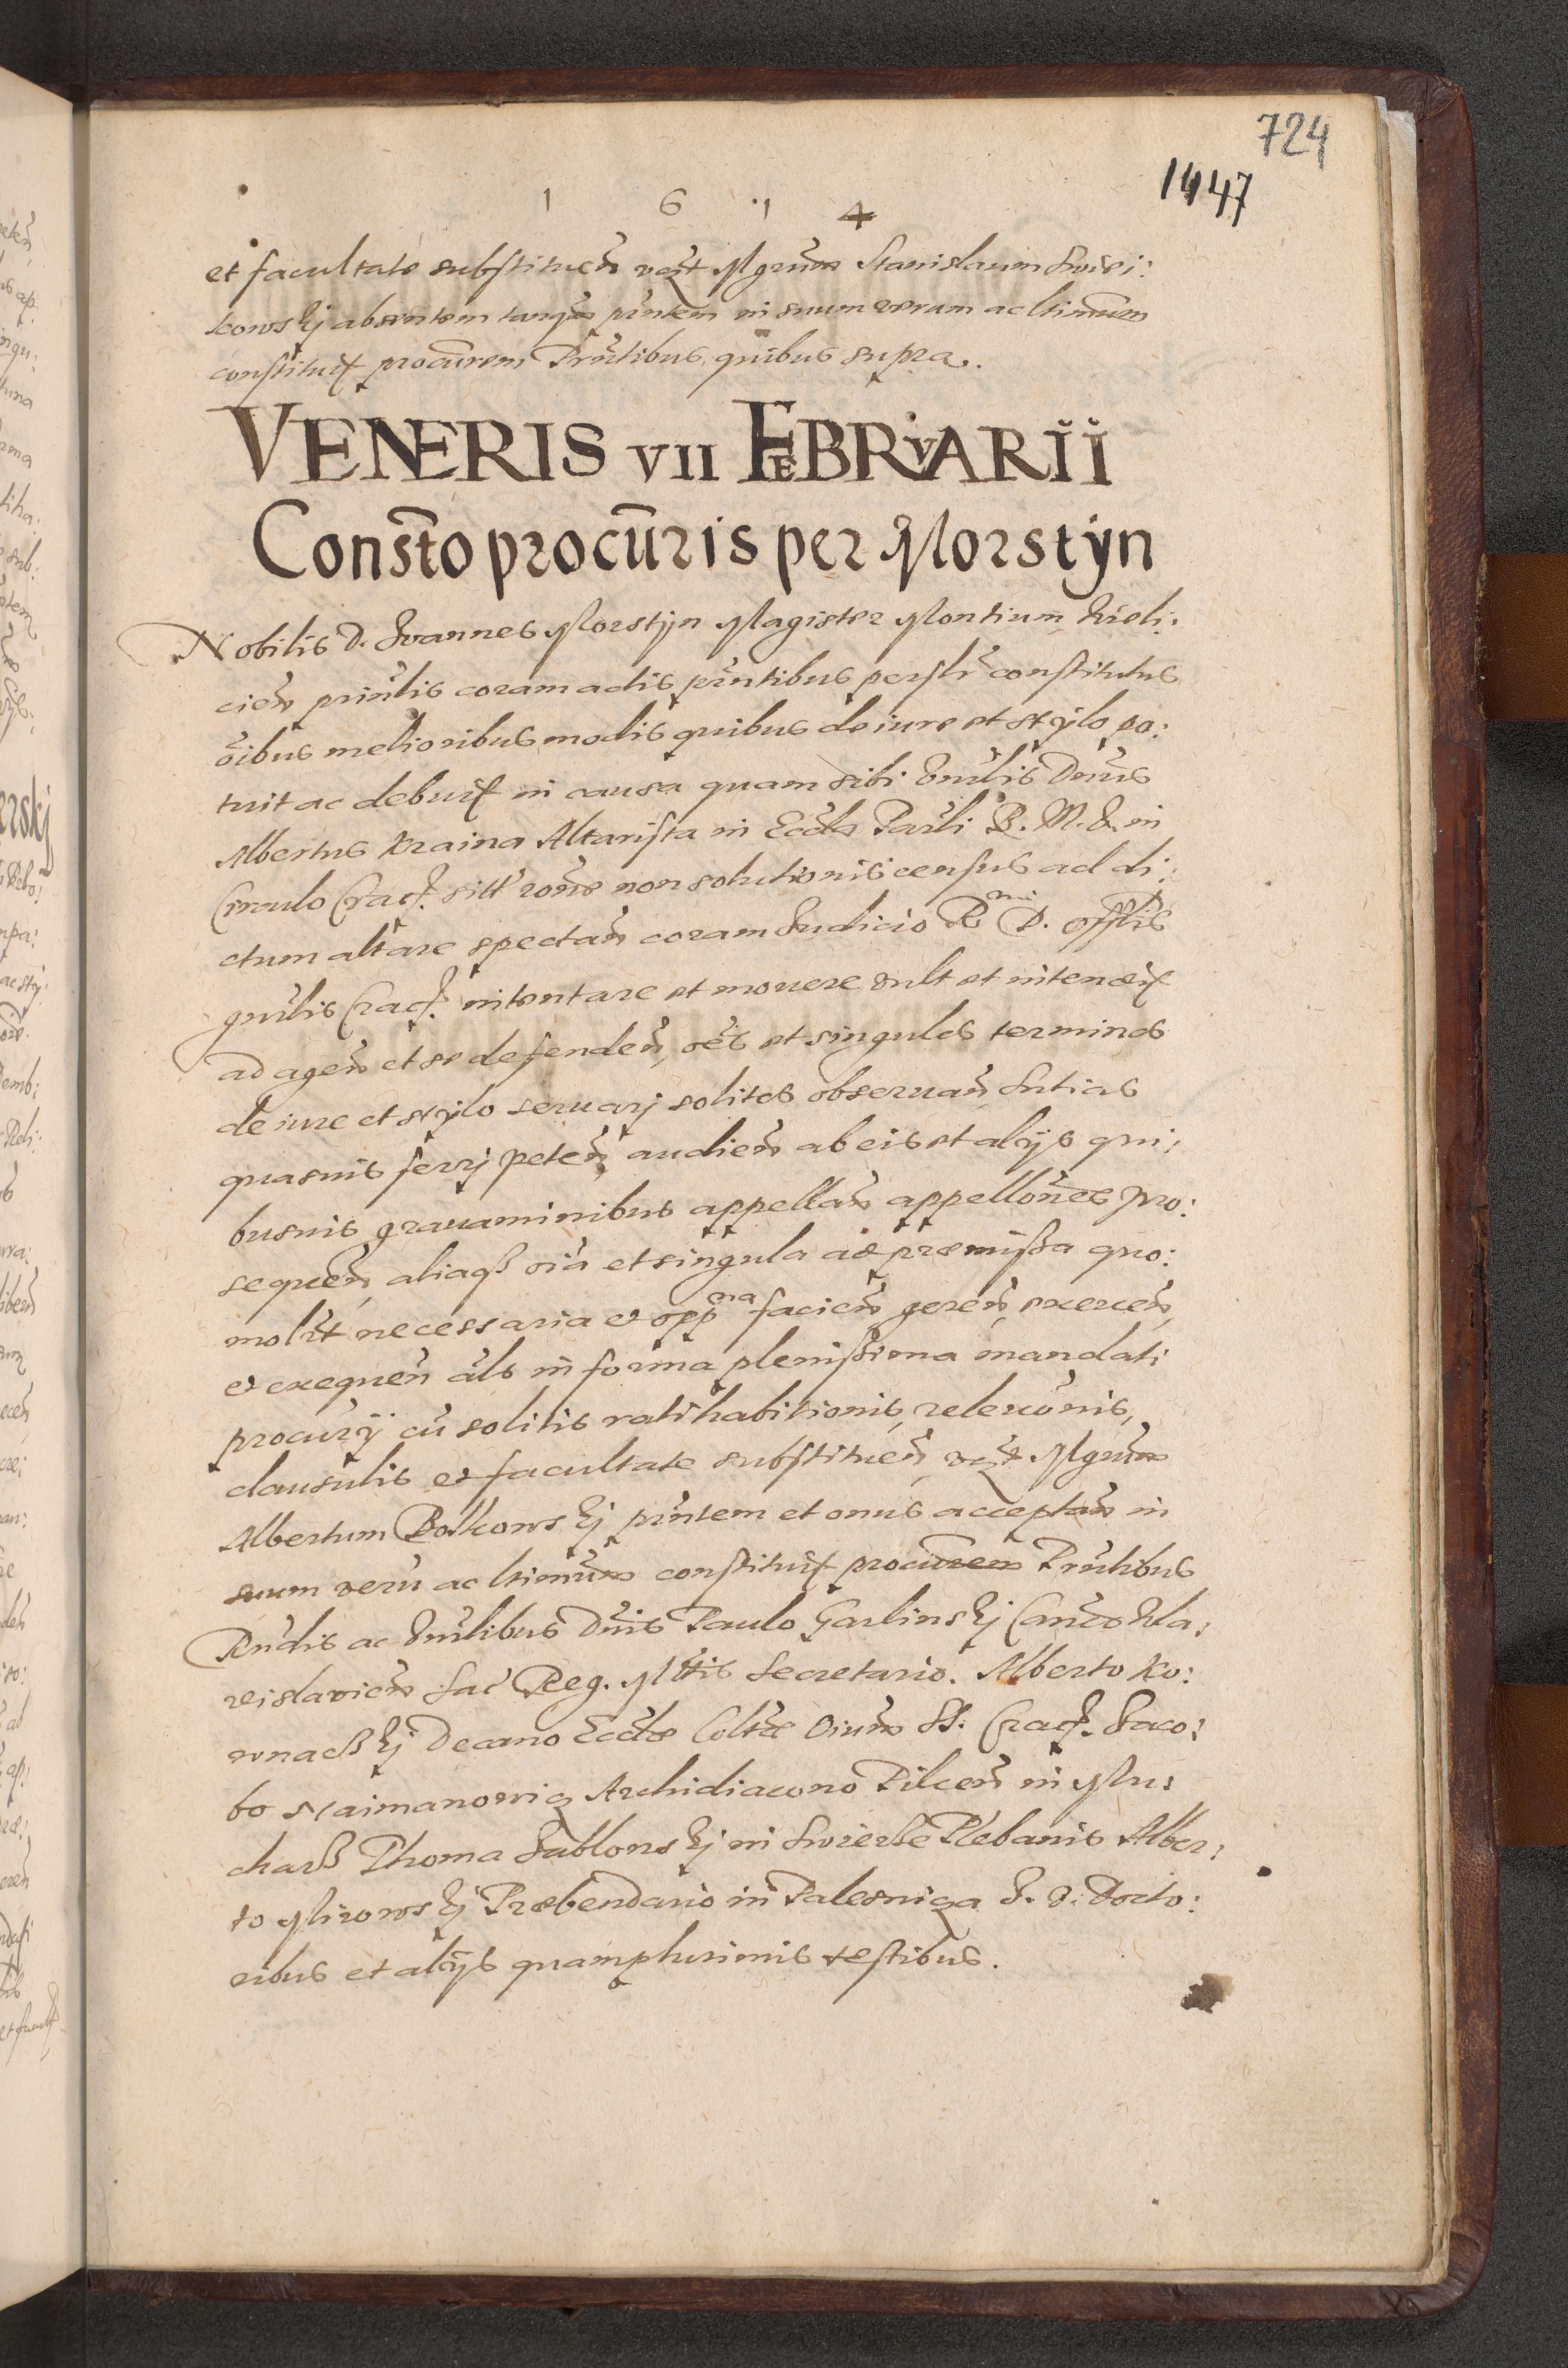 724
1447
1 6 1 4
et facultate substituen̄ vꝫt Mgrum̄ Stanislaum Swiei:
kowskj absentem tanq̄m pn̄tem in suum verum ac ltimum̄
constituit procūrem Pn̄tibus quibus supra.
VENERIS VII FEBRVARII
Consto procūris per Morstÿn
Nobilis D. Ioannes Morstÿn Magister Montium Wieli:
cien̄ prin̄lis coram actis pn̄tibus persl̄r constitutus
oībus melioribus modis quibus de iure et stÿlo po:
tuit ac debuit in causa quam sibi Vn̄lis Dn̄us
Albertus Kraina Altarista in Eccl̄a Parl̄i B. M. V. in
Circulo Crac. sit̄ rōne non solutionis census ad di:
ctum altare spectan̄ coram Iudicio R mi D. Offl̄is
gnr̄lis Crac. intentare et mouere vult et intendit
ad agen̄ et se defenden̄, oēs et singulos terminos
de iure et stÿlo seruarj solitos obseruan̄ sn̄tias
quasuis ferrj peten̄, audien̄ ab eis et alijs qui:
busuis grauaminibus appellan̄ appellōnes pro:
sequen̄, aliaqꝫ oīa et singula ad præmissa quo:
molt necessaria et opp na facien̄ geren̄, exercen̄,
et exequen̄ al̄s in forma plenissima mandati
procurÿ cū solitis ratihabitionis, releuōnis,
clausulis et facultate substituen̄, vꝫt Mgrum̄
Albertum Bolkowskj pn̄tem et onus acceptan̄ in
suum verū ac ltimum̄ constituit procūrem Pn̄tibus
Rn̄dis ac Vn̄libus Dn̄is Paulo Garlinskj Canco Wla:
reislauien̄ Sac Reg. Mttis Secretario. Alberto Ko:
wnackj Decano Eccl̄æ Coltæ Oium̄ SS. Crac. Iaco:
bo Szaimanowiq Archidiacono Pilcen̄ in Mu:
charß Thoma Iablonskj in Swierße Plebanis Alber:
to Mirowskj Præbendario in Palesniga I. V. Docto:
ribus et alijs quamplurimis testibus.